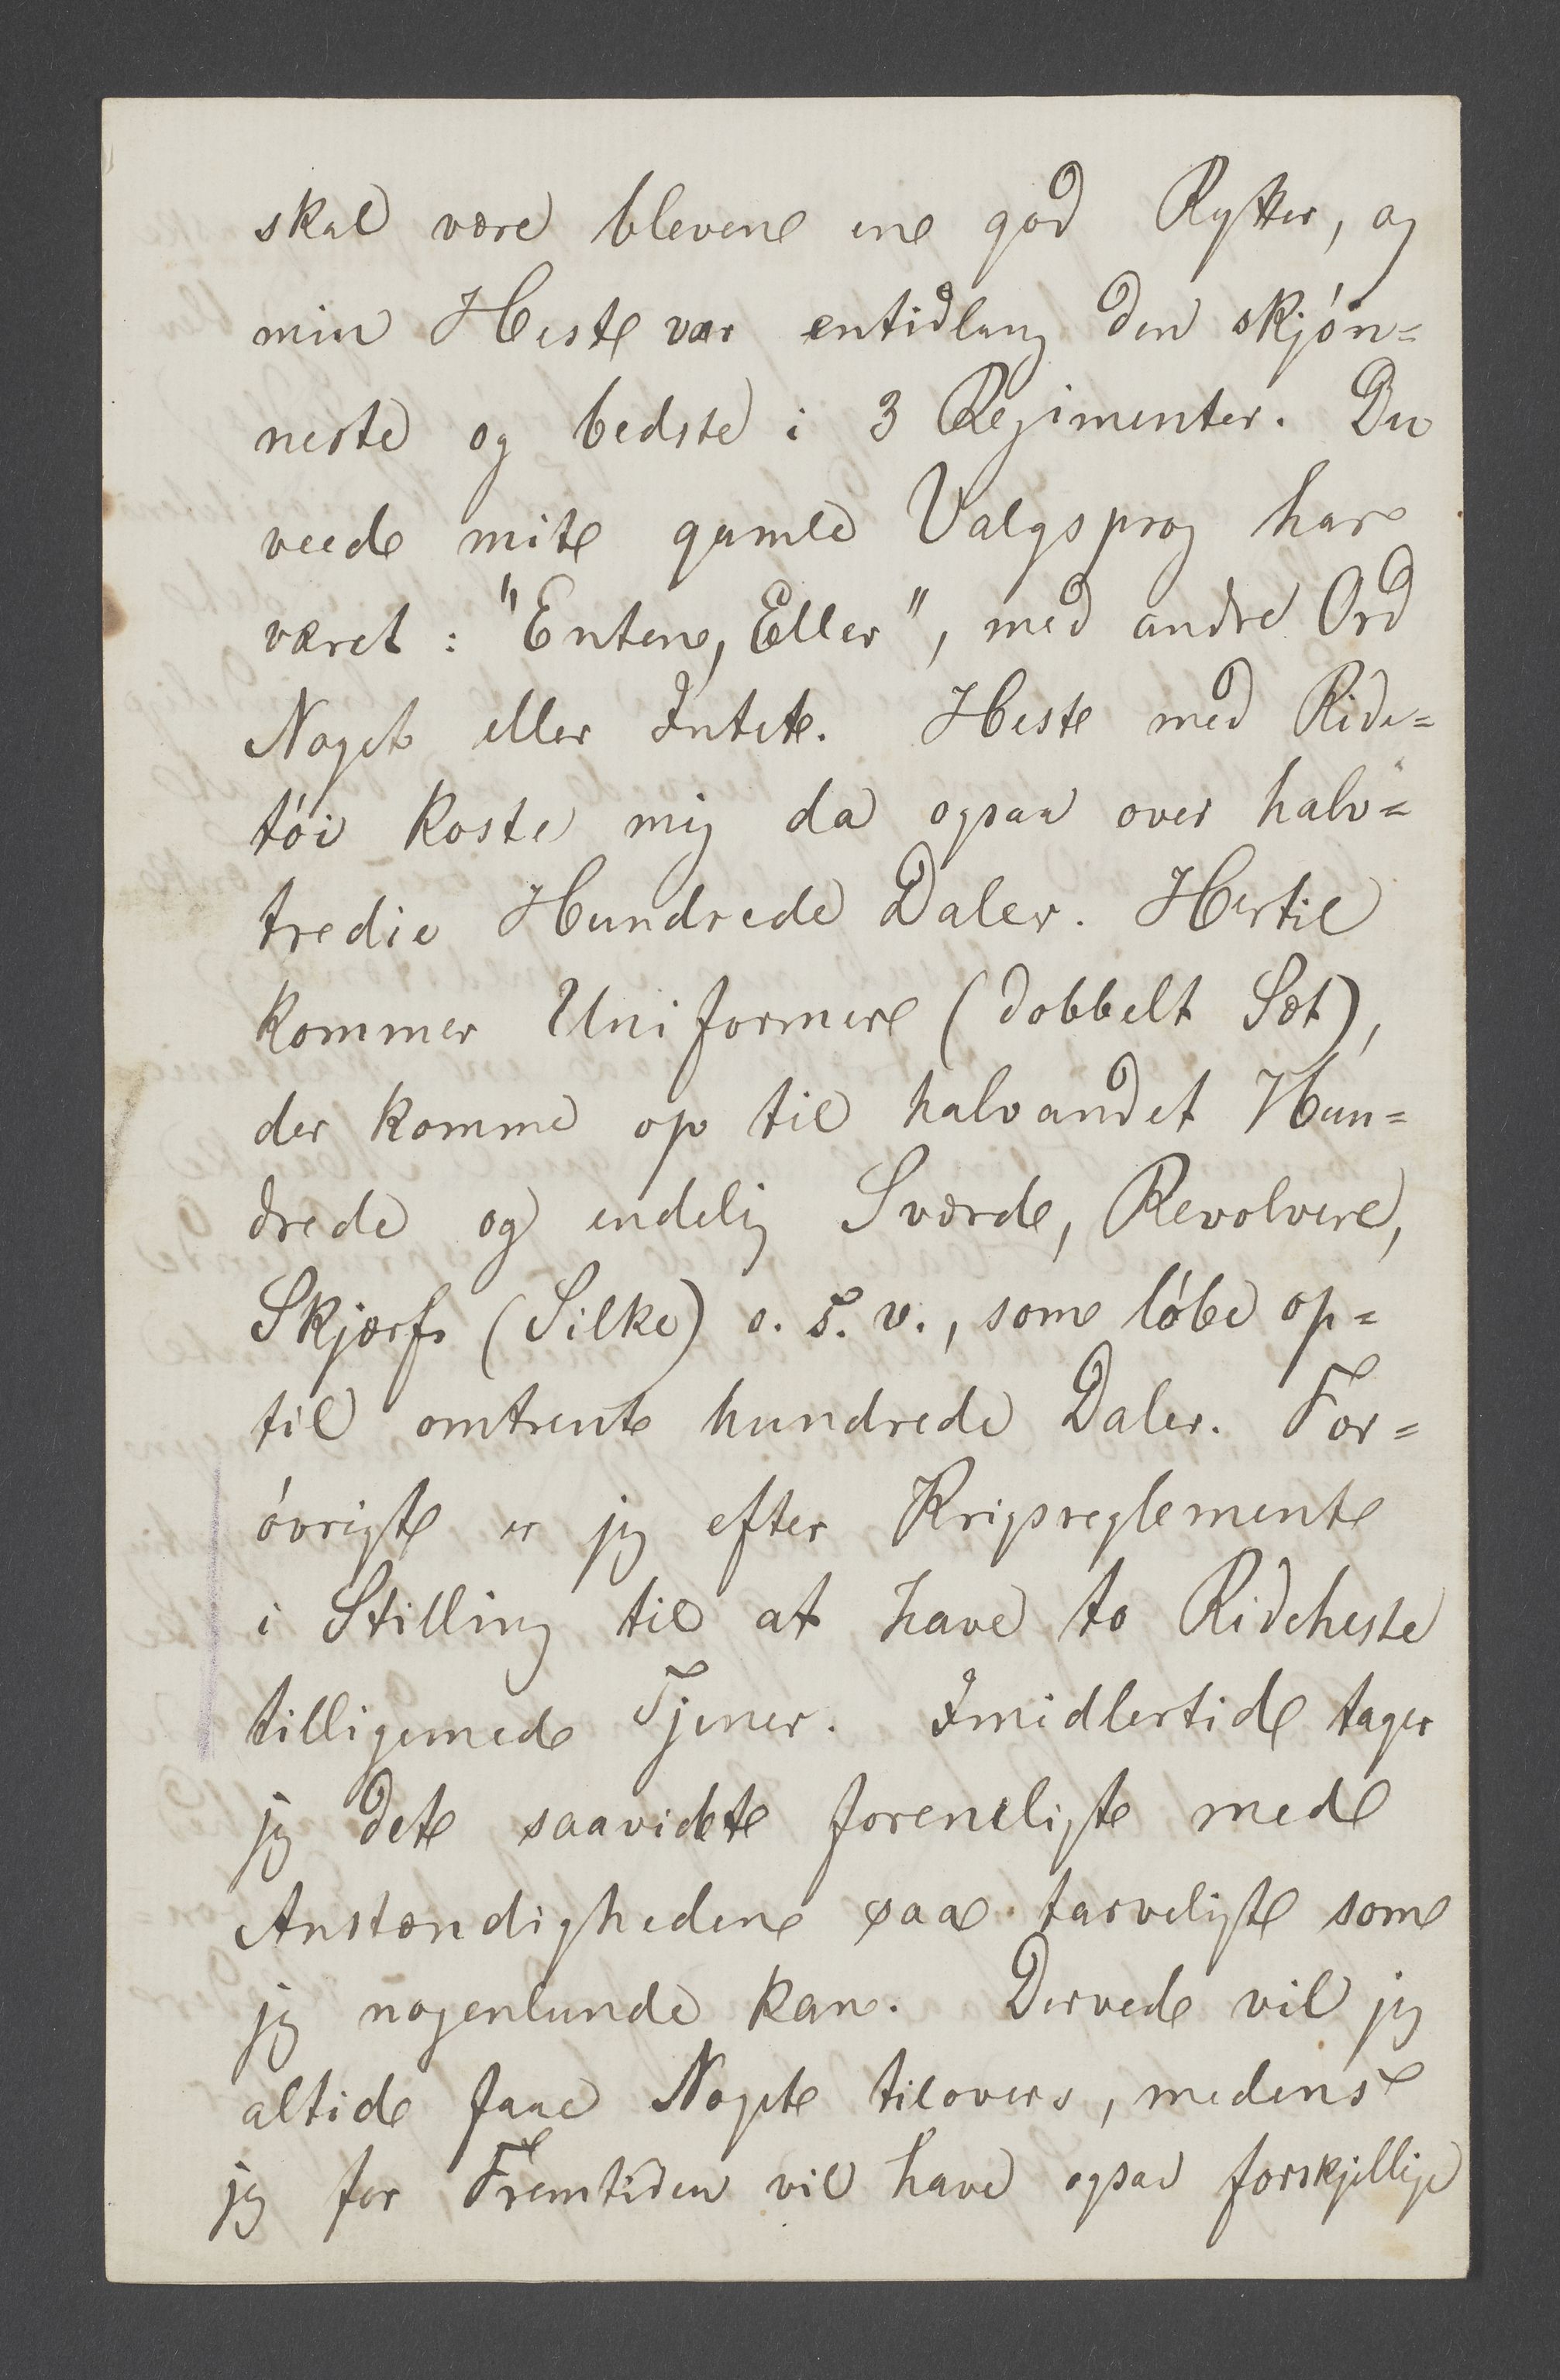 skal være bleven en god Rytter, og
min Hest var entidlang den skjøn=
neste og bedste i 3 Regimenter. Du
veed mit gamle Valgsprog har
været: "Enten, Eller", med andre Ord
Noget eller Intet. Hest med Ride=
tøi koste mig da ogsaa over halv=
tredie Hundrede Daler. Hertil
kommer Uniformer (dobbelt Sæt),
der komme op til halvandet Hun=
drede og endelig Sværd, Revolver,
Skjærf (Silke) o. s. v., som løbe op=
til omtrent hundrede Daler. For=
øvrigt er jeg efter Krigsreglement
i Stilling til at have to Rideheste
tilligemed Tjener. Imidlertid tager
jeg det saavidt foreneligt med
Anstændigheden saa tarveligt som
jeg nogenlunde kan. Derved vil jeg
altid faae Noget tilovers, medens
jeg for Fremtiden vil have ogsaa forskjellige